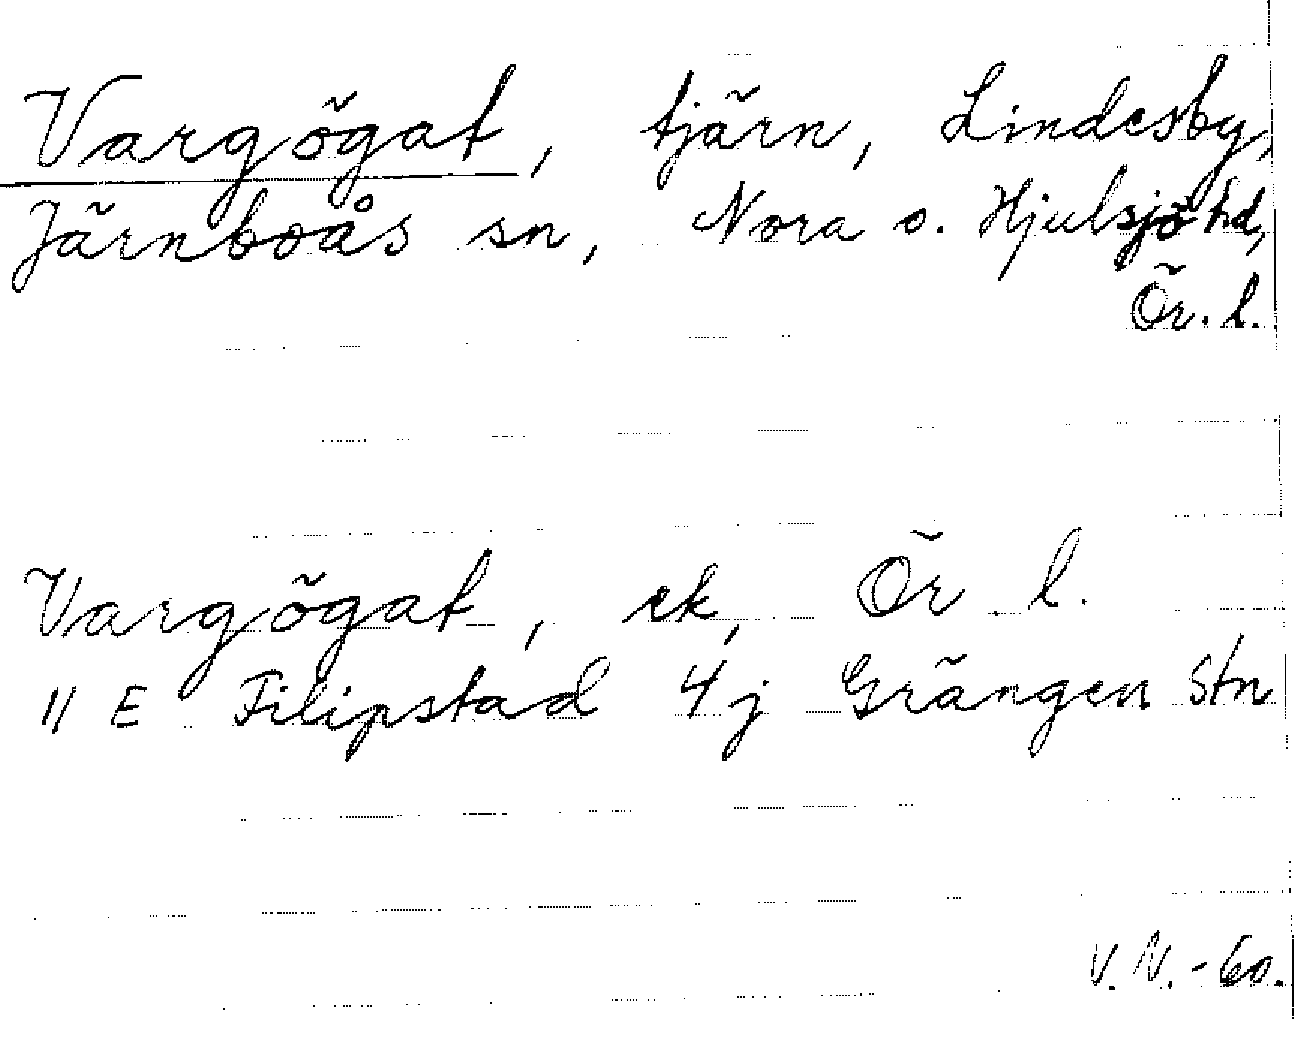 Vargögat, tjärn, Lindesby,
Järnboås sn, Nora o. Hjulsjö hd,
Ör. l.
Vargögat, ek, Ör l.
11 E Filipstad 4j Grängen Stn
V.N.-60.